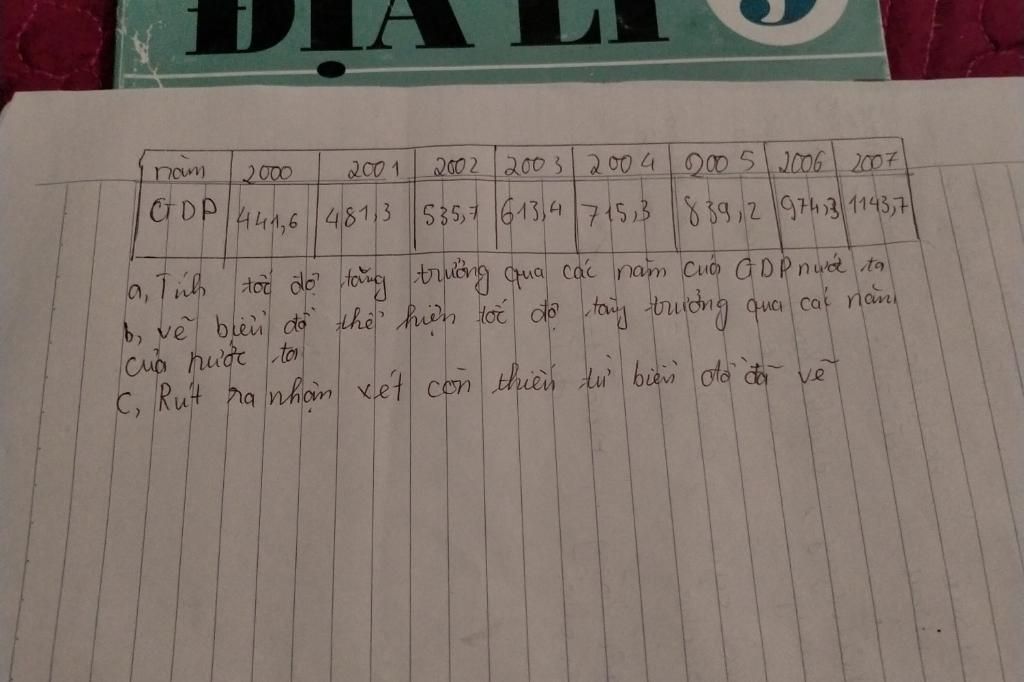 ĐỊA LÍ 9
năm 2000 2001 2002 2003 2004 2005 2006 2007
GDP 441,6 481,3 535,7 613,4 715,3 839,2 974,3 1143,7
a, Tính tốc độ tăng trưởng qua các năm của GDP nước ta
b, vẽ biểu đồ thể hiện tốc độ tăng trưởng qua các năm
của nước ta
C, Rút ra nhận xét cần thiết từ biểu đồ đã vẽ